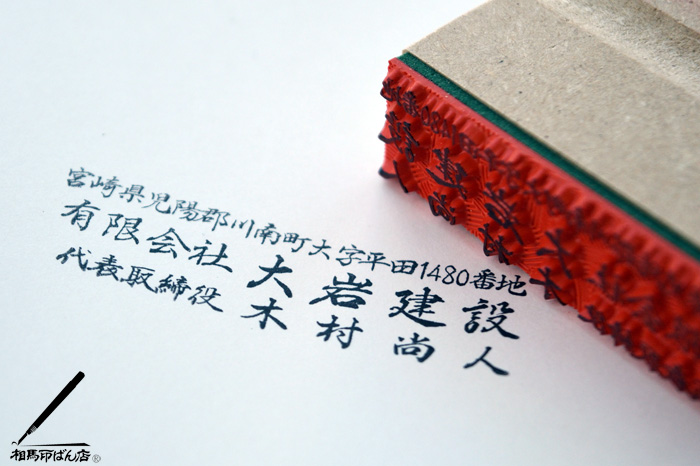 宮崎県児陽郡川南町大字平田1480番地
有限会社 大岩建設
代表取締役 木村尚人
相馬印ばん店®